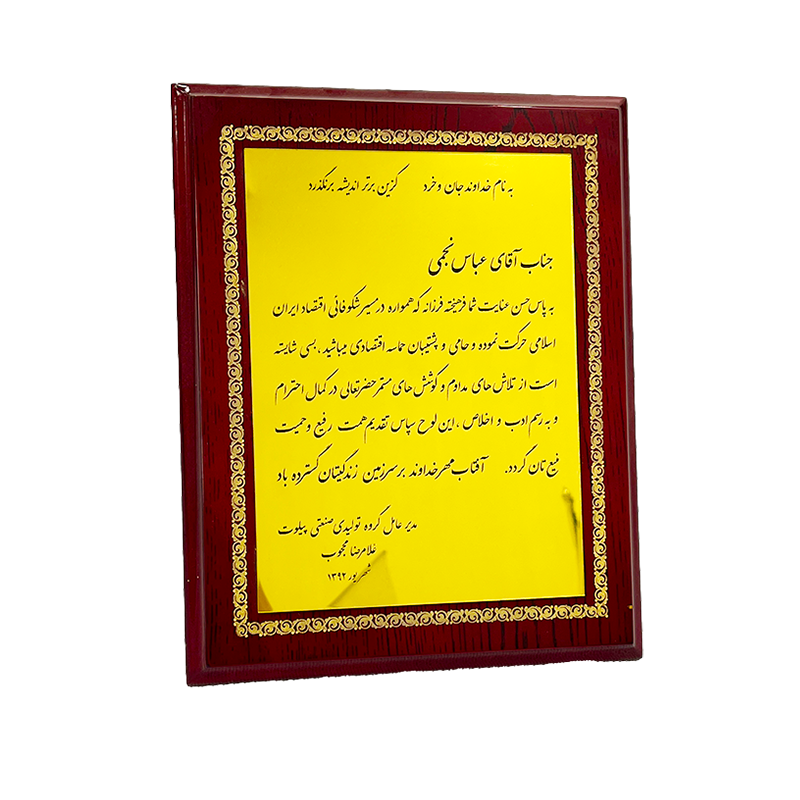 به نام خداوند جان و خرد کزین برتر اندیشه برنگذرد
جناب آقای عباس نجمی
به پاس حسن عنایت شما فرهیخته فرزانه که همواره در مسیر شکوفائی اقتصاد ایران
اسلامی حرکت نموده و حامی و پشتیبان حماسه اقتصادی میباشید ، بسی شایسته
است از تلاش های مداوم و کوشش های مستمر حضرتعالی در کمال احترام
و به رسم ادب و اخلاص ، این لوح سپاس تقدیم همت رفیع و حمیت
منیع تان گردد. آفتاب مهر خداوند بر سرزمین زندگیتان گسترده باد
مدیر عامل گروه تولیدی صنعتی پیلوت
غلامرضا محجوب
شهریور ۱۳۹۲